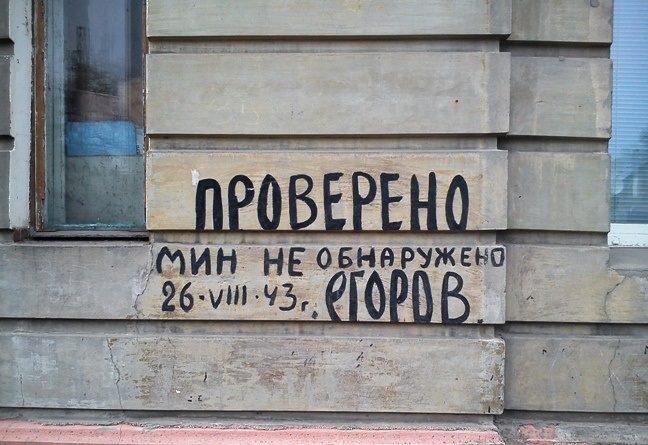 ПРОВЕРЕНО
МИН НЕ ОБНАРУЖЕНО
26·VIII·43г. ЕГОРОВ